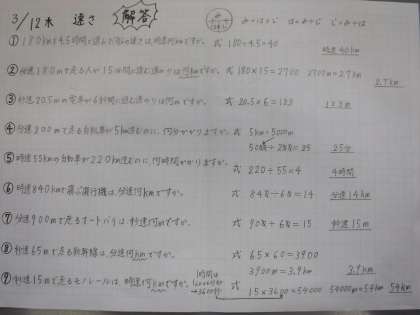 3/12木 速さ 解答 み＝は×じ は＝み÷じ じ＝み÷は
① 180kmを4.5時間で進んだ時の速さは,時速何kmですか。 式 180÷4.5=40 時速40km
② 分速180mで走る人が15分間に進む道のりは何kmですか。 式 180×15=2700 2700m=2.7km 2.7km
③ 秒速20.5mの電車が6秒間に進む道のりは何mですか。 式 20.5×6=123 123m
④ 分速200mで走る自転車が5km進むのに,何分かかりますか。 式 5km=5000m
25分
⑤ 時速55kmの自転車が220km進むのに,何時間かかりますか。 式 220÷55=4 4時間
⑥ 時速840kmで飛ぶ飛行機は,分速何kmですか。 式 840÷60=14 分速14km
⑦ 分速900mで走るオートバイは秒速何mですか。 式 900÷60=15 秒速15m
⑧ 秒速65mで走る新幹線は,分速何kmですか。 式 65×60=3900
3900m=3.9km 3.9km
⑨ 秒速15mで走るモノレールは,時速何kmですか。 1時間は 3600秒 式 15×3600=54000 54000m=54km 54km